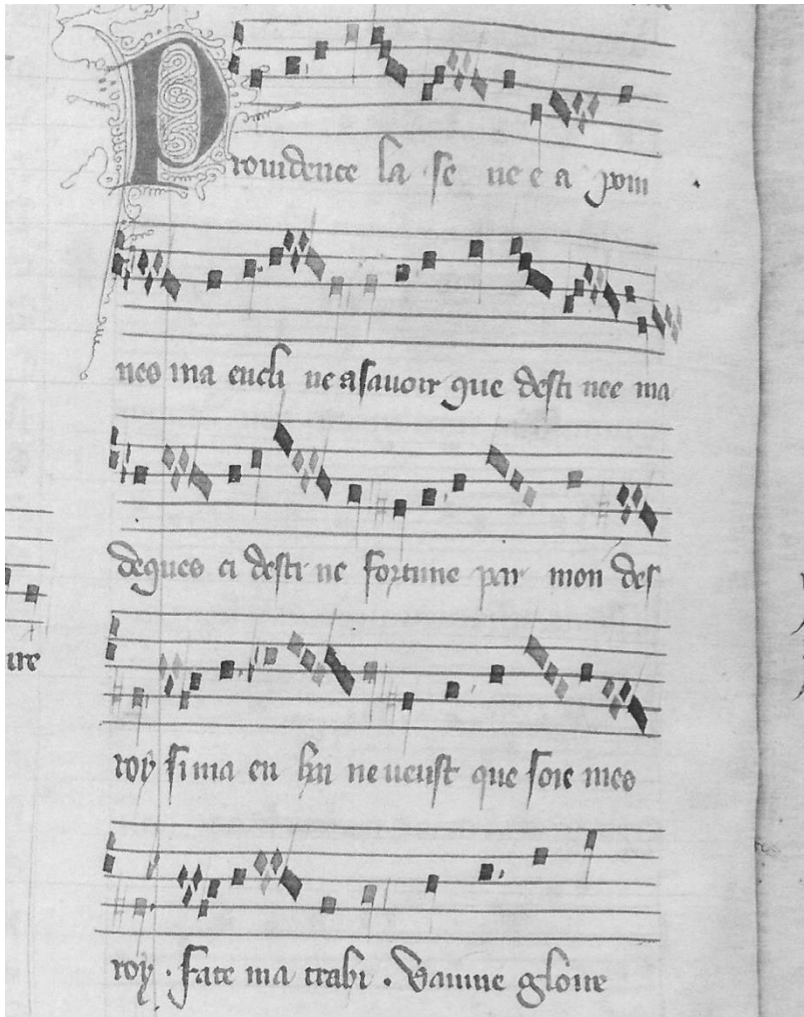 Providence la se ne e a poin
nes ma encli ne a savoir que desti nee ma
deques ci desti ne fortune par mon des
roy si ma en hin ne veust que soie mes
roy . fate ma trahi . Vainne gloire
ire